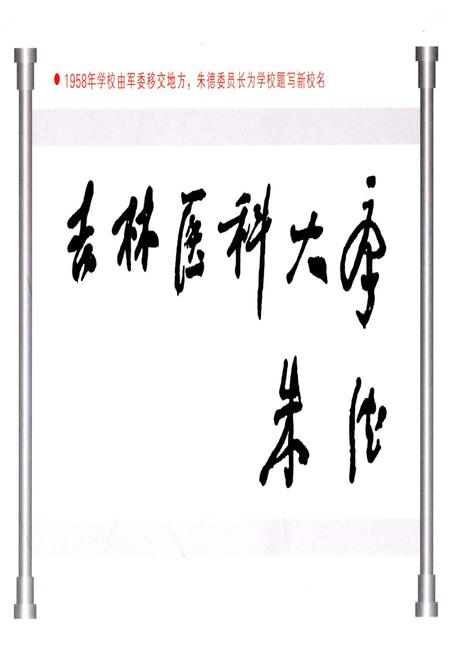 1958年学校由军委移交地方，朱德委员长为学校题写新校名
吉林医科大学
朱德